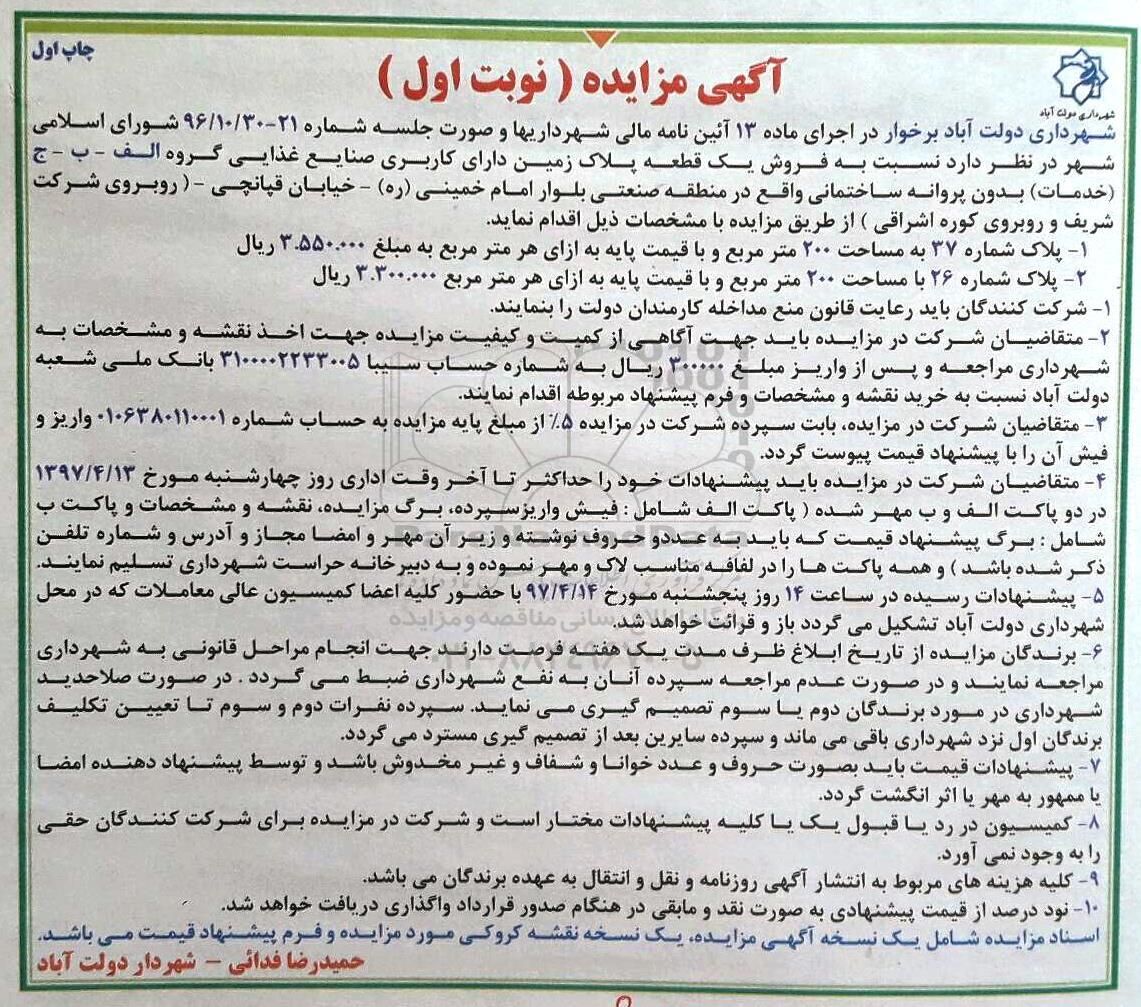 چاپ اول
آگهی مزایده ( نوبت اول )
شهرداری دولت آباد
شهرداری دولت آباد برخوار در اجرای ماده ۱۳ آئین نامه مالی شهرداریها و صورت جلسه شماره ۲۱-۹۶/۱۰/۳۰ شورای اسلامی
شهر در نظر دارد نسبت به فروش یک قطعه پلاک زمین دارای کاربری صنایع غذایی گروه الف - ب - ج
(خدمات) بدون پروانه ساختمانی واقع در منطقه صنعتی بلوار امام خمینی (ره) - خیابان قپانچی - ( روبروی شرکت
شریف و روبروی کوره اشراقی ) از طریق مزایده با مشخصات ذیل اقدام نماید.
۱- پلاک شماره ۳۷ به مساحت ۲۰۰ متر مربع و با قیمت پایه به ازای هر متر مربع به مبلغ ۳.۵۵۰.۰۰۰ ریال
۲- پلاک شماره ۲۶ با مساحت ۲۰۰ متر مربع و با قیمت پایه به ازای هر متر مربع ۳.۳۰۰.۰۰۰ ریال
۱- شرکت کنندگان باید رعایت قانون منع مداخله کارمندان دولت را بنمایند.
۲- متقاضیان شرکت در مزایده باید جهت آگاهی از کمیت و کیفیت مزایده جهت اخذ نقشه و مشخصات به
شهرداری مراجعه و پس از واریز مبلغ ۳۰۰۰۰۰ ریال به شماره حساب سیبا ۳۱۰۰۰۰۲۲۳۳۰۰۵ بانک ملی شعبه
دولت آباد نسبت به خرید نقشه و مشخصات و فرم پیشنهاد مربوطه اقدام نمایند.
۳- متقاضیان شرکت در مزایده، بابت سپرده شرکت در مزایده ۵٪ از مبلغ پایه مزایده به حساب شماره ۰۱۰۶۳۸۰۱۱۰۰۰۱ واریز و
فیش آن را با پیشنهاد قیمت پیوست گردد.
۴- متقاضیان شرکت در مزایده باید پیشنهادات خود را حداکثر تا آخر وقت اداری روز چهارشنبه مورخ ۱۳۹۷/۴/۱۳
در دو پاکت الف و ب مهر شده ( پاکت الف شامل : فیش واریزسپرده، برگ مزایده، نقشه و مشخصات و پاکت ب
شامل : برگ پیشنهاد قیمت که باید به عددو حروف نوشته و زیر آن مهر و امضا مجاز و آدرس و شماره تلفن
ذکر شده باشد ) و همه پاکت ها را در لفافه مناسب لاک و مهر نموده و به دبیرخانه حراست شهرداری تسلیم نمایند.
۵- پیشنهادات رسیده در ساعت ۱۴ روز پنجشنبه مورخ ۹۷/۴/۱۴ با حضور کلیه اعضا کمیسیون عالی معاملات که در محل
شهرداری دولت آباد تشکیل می گردد باز و قرائت خواهد شد.
۶- برندگان مزایده از تاریخ ابلاغ ظرف مدت یک هفته فرصت دارند جهت انجام مراحل قانونی به شهرداری
مراجعه نمایند و در صورت عدم مراجعه سپرده آنان به نفع شهرداری ضبط می گردد . در صورت صلاحدید
شهرداری در مورد برندگان دوم یا سوم تصمیم گیری می نماید. سپرده نفرات دوم و سوم تا تعیین تکلیف
برندگان اول نزد شهرداری باقی می ماند و سپرده سایرین بعد از تصمیم گیری مسترد می گردد.
۷- پیشنهادات قیمت باید بصورت حروف و عدد خوانا و شفاف و غیر مخدوش باشد و توسط پیشنهاد دهنده امضا
یا ممهور به مهر یا اثر انگشت گردد.
۸- کمیسیون در رد یا قبول یک یا کلیه پیشنهادات مختار است و شرکت در مزایده برای شرکت کنندگان حقی
را به وجود نمی آورد.
۹- کلیه هزینه های مربوط به انتشار آگهی روزنامه و نقل و انتقال به عهده برندگان می باشد.
۱۰- نود درصد از قیمت پیشنهادی به صورت نقد و مابقی در هنگام صدور قرارداد واگذاری دریافت خواهد شد.
اسناد مزایده شامل یک نسخه آگهی مزایده، یک نسخه نقشه کروکی مورد مزایده و فرم پیشنهاد قیمت می باشد.
حمیدرضا فدائی - شهردار دولت آباد